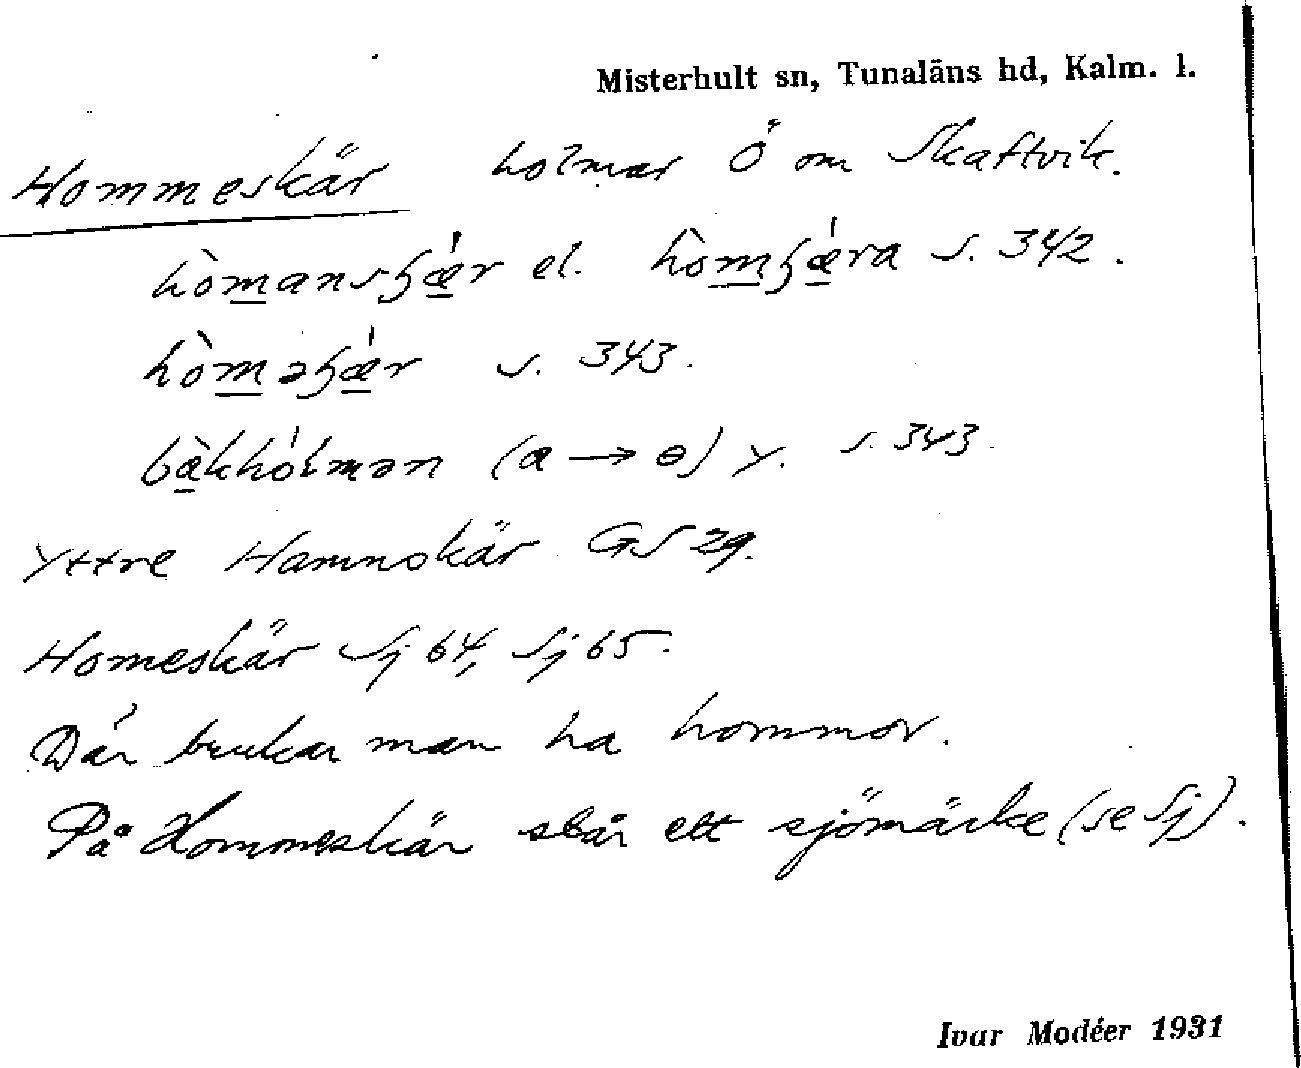 Misterhult sn, Tunaläns hd, Kalm. l.
Hommeskär holmar Ö om Skaftvik.
hòmansʃǽr el. hòmʃǽra s. 342.
hòməʃǽr s. 343.
bàkhólmən (a → ɵ) y. s. 343.
Yttre Hamnskär GS 29.
Homeskär Sj 64, Sj 65.
Där brukar man ha hommor.
På Hommeskär står ett sjömärke (se Sj).
Ivar Modéer 1931